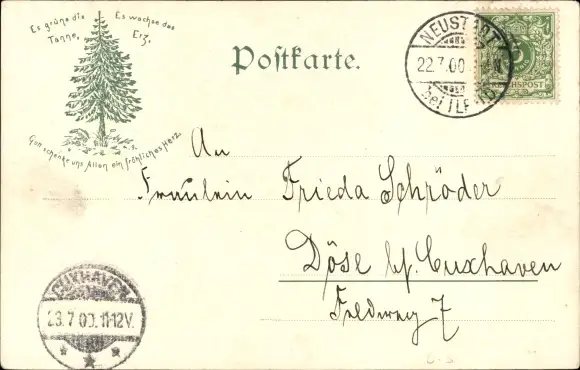 Es grüne die Tanne,
Es wachse das Erz,
Gott schenke uns Allen ein fröhliches Herz.
Postkarte.
NEUSTADT
22.7.00
bei ILF
REICHSPOST
An
Fräulein Frieda Schröder
Döse bf. Cuxhaven
Feldweg 7
CUXHAVEN
23.7.00. 11-12V.